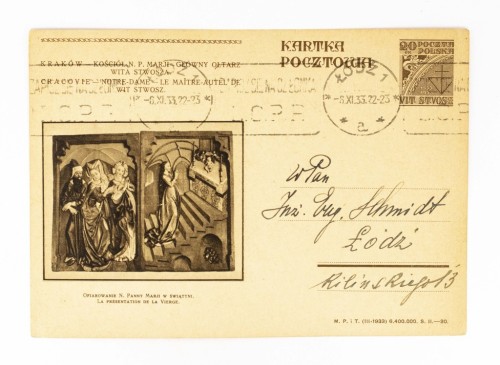 KRAKÓW — KOŚCIÓŁ N. P. MARJI – GŁÓWNY OŁTARZ
WITA STWOSZA.
CRACOVIE — NOTRE-DAME – LE MAÎTRE-AUTEL DE
WIT STWOSZ.
KARTKA
POCZTOWA
20 GR
POCZTA
POLSKA
WIT STWOSZ
ŁÓDŹ 1
-6.XI.33.22-23
ŁÓDŹ 1
-6.XI.33.22-23
a
WPan
Inż. Erg. Schmidt
Łódź
Kilińskiego 13
OFIAROWANIE N. PANNY MARJI W ŚWIĄTYNI.
LA PRÉSENTATION DE LA VIERGE.
M. P. i T. (III-1933) 6.400.000. S. II.—30.